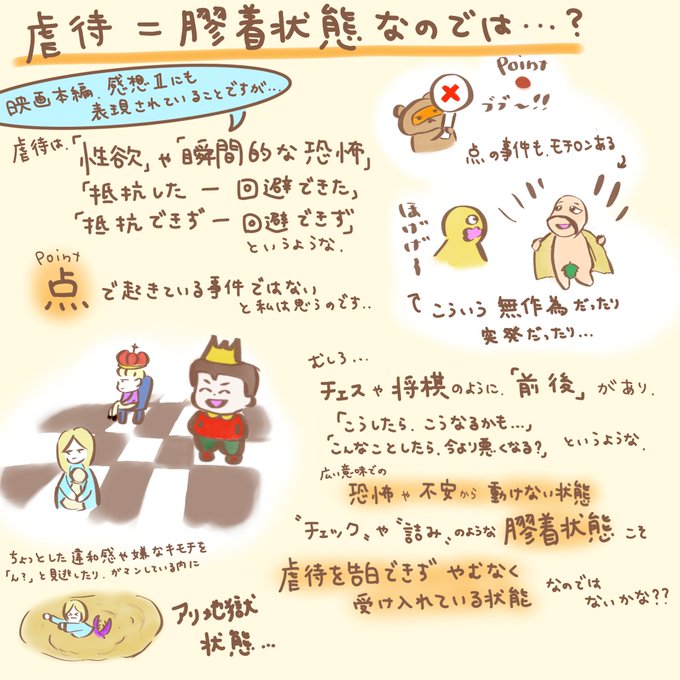 虐待 = 膠着状態なのでは…?
映画本編、感想Ⅱにも
表現されていることですが…
虐待は、「性欲」や「瞬間的な恐怖」
「抵抗した ー 回避できた」
「抵抗できず ー 回避できず」
というような、
Point
点で起きている事件ではない
と私は思うのです..
Point
ブブ〜!!
点の事件も、モチロンある
ほげげー
こういう 無作為だったり
突発だったり…
むしろ…
チェスや将棋のように、「前後」があり、
「こうしたら、こうなるかも…」
「こんなことしたら、今より悪くなる?」 というような、
広い意味での
恐怖や不安から動けない状態
"チェック"や"詰み"のような膠着状態こそ
虐待を告白できず やむなく
受け入れている状態 なのでは
ないかな??
ちょっとした違和感や嫌なキモチを
「ん?」と見逃したり、ガマンしている内に
アリ地獄
状態…